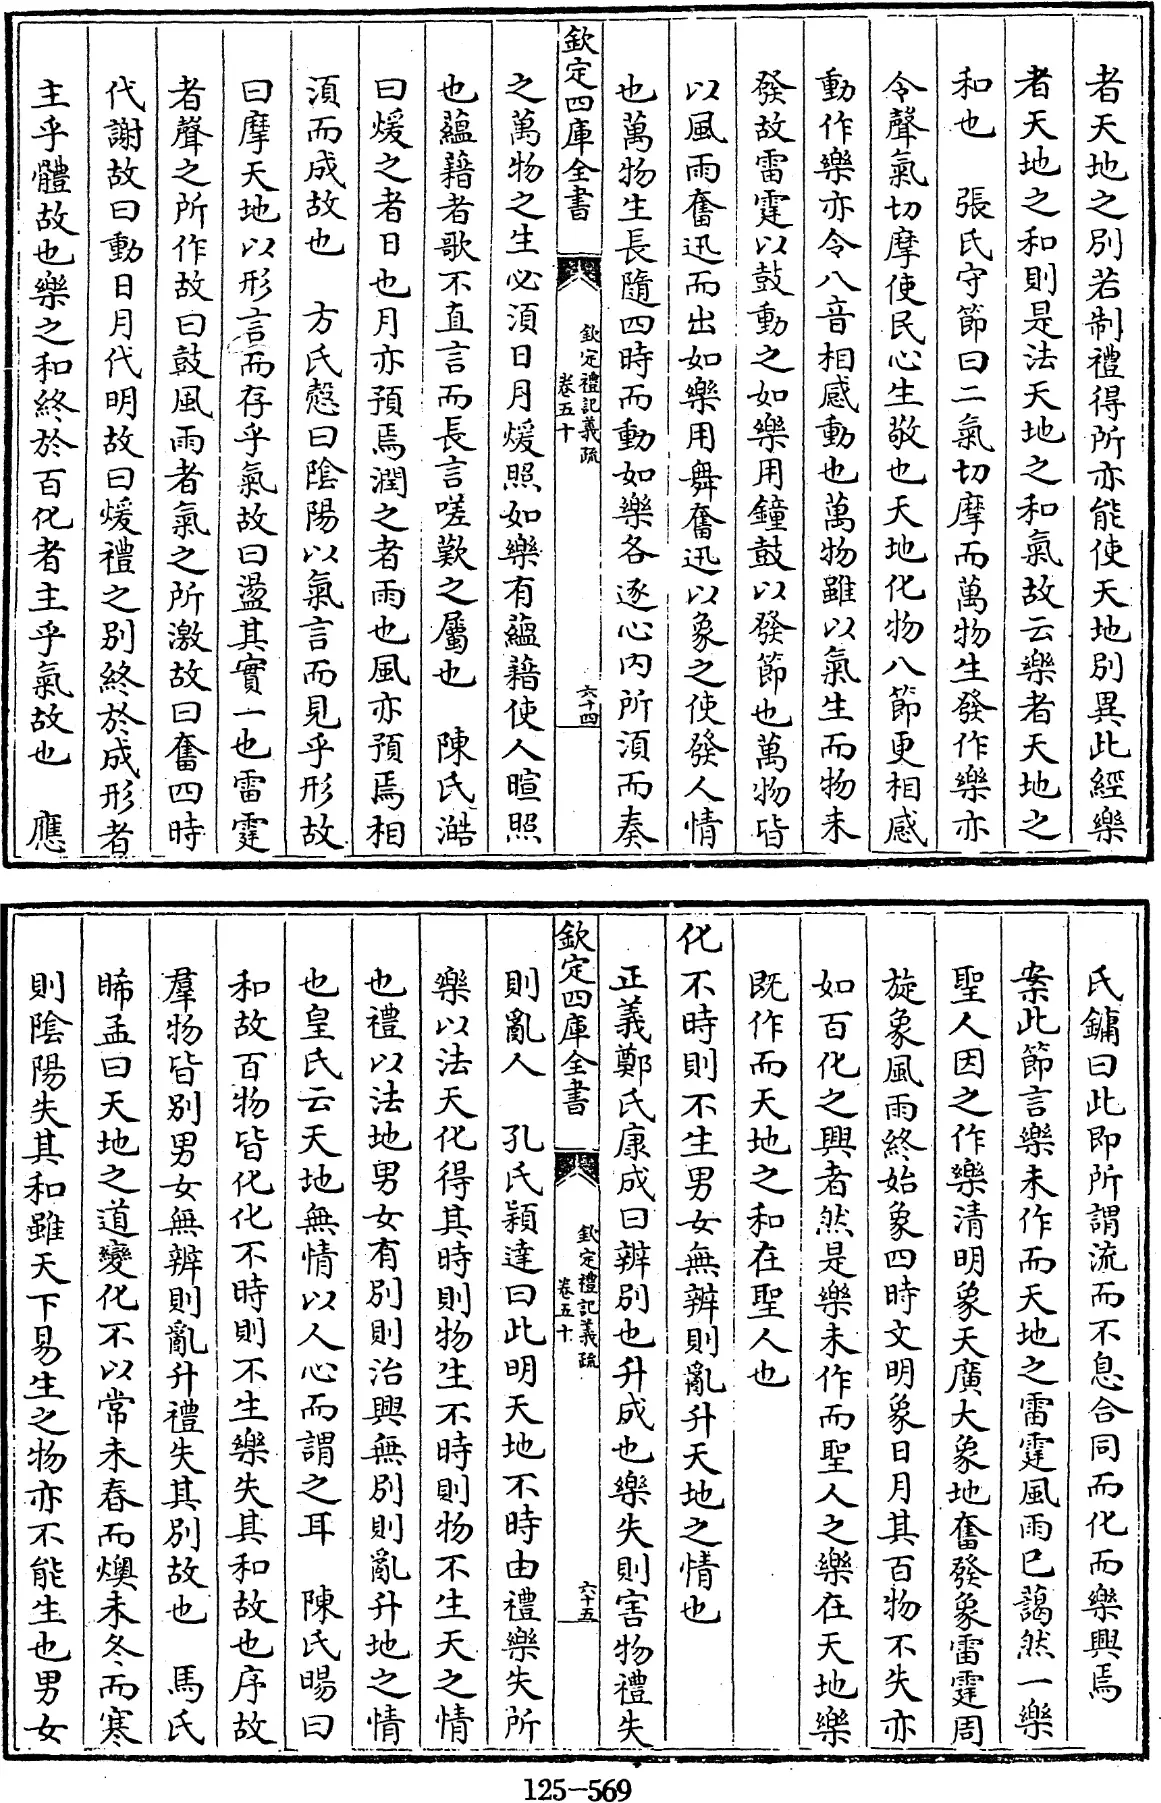 者天地之別若制禮得所亦能使天地別異此經樂
者天地之和則是法天地之和氣故云樂者天地之
和也　張氏守節曰二氣切摩而萬物生發作樂亦
令聲氣切摩使民心生敬也天地化物八節更相感
動作樂亦令八音相感動也萬物雖以氣生而物未
發故雷霆以鼓動之如樂用鐘鼓以發節也萬物皆
以風雨奮迅而出如樂用舞奮迅以象之使發人情
也萬物生長隨四時而動如樂各逐心內所須而奏
欽定四庫全書　欽定禮記義疏卷五十　六十四
之萬物之生必須日月煖照如樂有蘊藉使人暄照
也蘊藉者歌不直言而長言嗟歎之屬也　陳氏澔
曰煖之者日也月亦預焉潤之者雨也風亦預焉相
須而成故也　方氏慤曰陰陽以氣言而見乎形故
曰摩天地以形言而存乎氣故曰盪其實一也雷霆
者聲之所作故曰鼓風雨者氣之所激故曰奮四時
代謝故曰動日月代明故曰煖禮之別終於成形者
主乎體故也樂之和終於百化者主乎氣故也　應
氏鏞曰此即所謂流而不息合同而化而樂興焉
案此節言樂未作而天地之雷霆風雨已藹然一樂
聖人因之作樂清明象天廣大象地奮發象雷霆周
旋象風雨終始象四時文明象日月其百物不失亦
如百化之興者然是樂未作而聖人之樂在天地樂
既作而天地之和在聖人也
化不時則不生男女無辨則亂升天地之情也
正義鄭氏康成曰辨別也升成也樂失則害物禮失
欽定四庫全書　欽定禮記義疏卷五十　六十五
則亂人　孔氏穎達曰此明天地不時由禮樂失所
樂以法天化得其時則物生不時則物不生天之情
也禮以法地男女有別則治興無別則亂升地之情
也皇氏云天地無情以人心而謂之耳　陳氏暘曰
和故百物皆化化不時則不生樂失其和故也序故
羣物皆別男女無辨則亂升禮失其別故也　馬氏
晞孟曰天地之道變化不以常未春而燠未冬而寒
則陰陽失其和雖天下易生之物亦不能生也男女
125-569